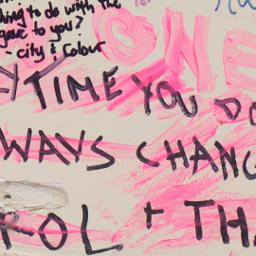 ding to do with the
gave to you?
- city & Colour
ONE
YTIME YOU DO
WAYS CHANG
ROL + THA